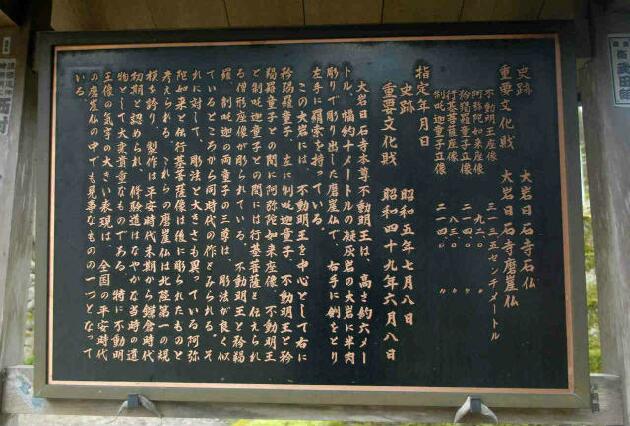 史跡　大岩日石寺石仏
重要文化財　大岩日石寺磨崖仏
不動明王坐像　三一三、五センチメートル
阿弥陀如来坐像　九二、〇　〃
矜羯羅童子立像　二一四、〇　〃
行基菩薩座像　八三、〇　〃
制吒迦童子立像　二一四、〇　〃
指定年月日
史跡　昭和五年七月八日
重要文化財　昭和四十九年六月八日
大岩日石寺本尊不動明王は、高さ約六メー
トル、幅約十メートルの凝灰岩の大岩に半肉
彫りで彫り出した磨崖仏で、右手に剣をとり
左手に羂索を持っている。
この大岩には、不動明王を中心として右に
矜羯羅童子、左に制吒迦童子、不動明王と矜
羯羅童子との間に阿弥陀如来座像、不動明王
と制吒迦童子との間には行基菩薩と伝えられ
る僧形座像が彫られている。不動明王と矜羯
羅、制吒迦の両童子の三尊は、彫法が良く似
ているところから同時代の作とみられる。そ
れに対して、彫法と大きさも異っている阿弥
陀如来と伝行基菩薩像は後に彫られたものと
考えられる。これらの磨崖仏は北陸第一の規
模を誇り、製作は平安時代末期から鎌倉時代
初期と認められ、修験道はなやかな当時の遺
物として大変貴重なものである。特に不動明
王像の気宇の大きい表現は、全国の平安時代
の磨崖仏の中でも見事なものの一つとなって
いる。